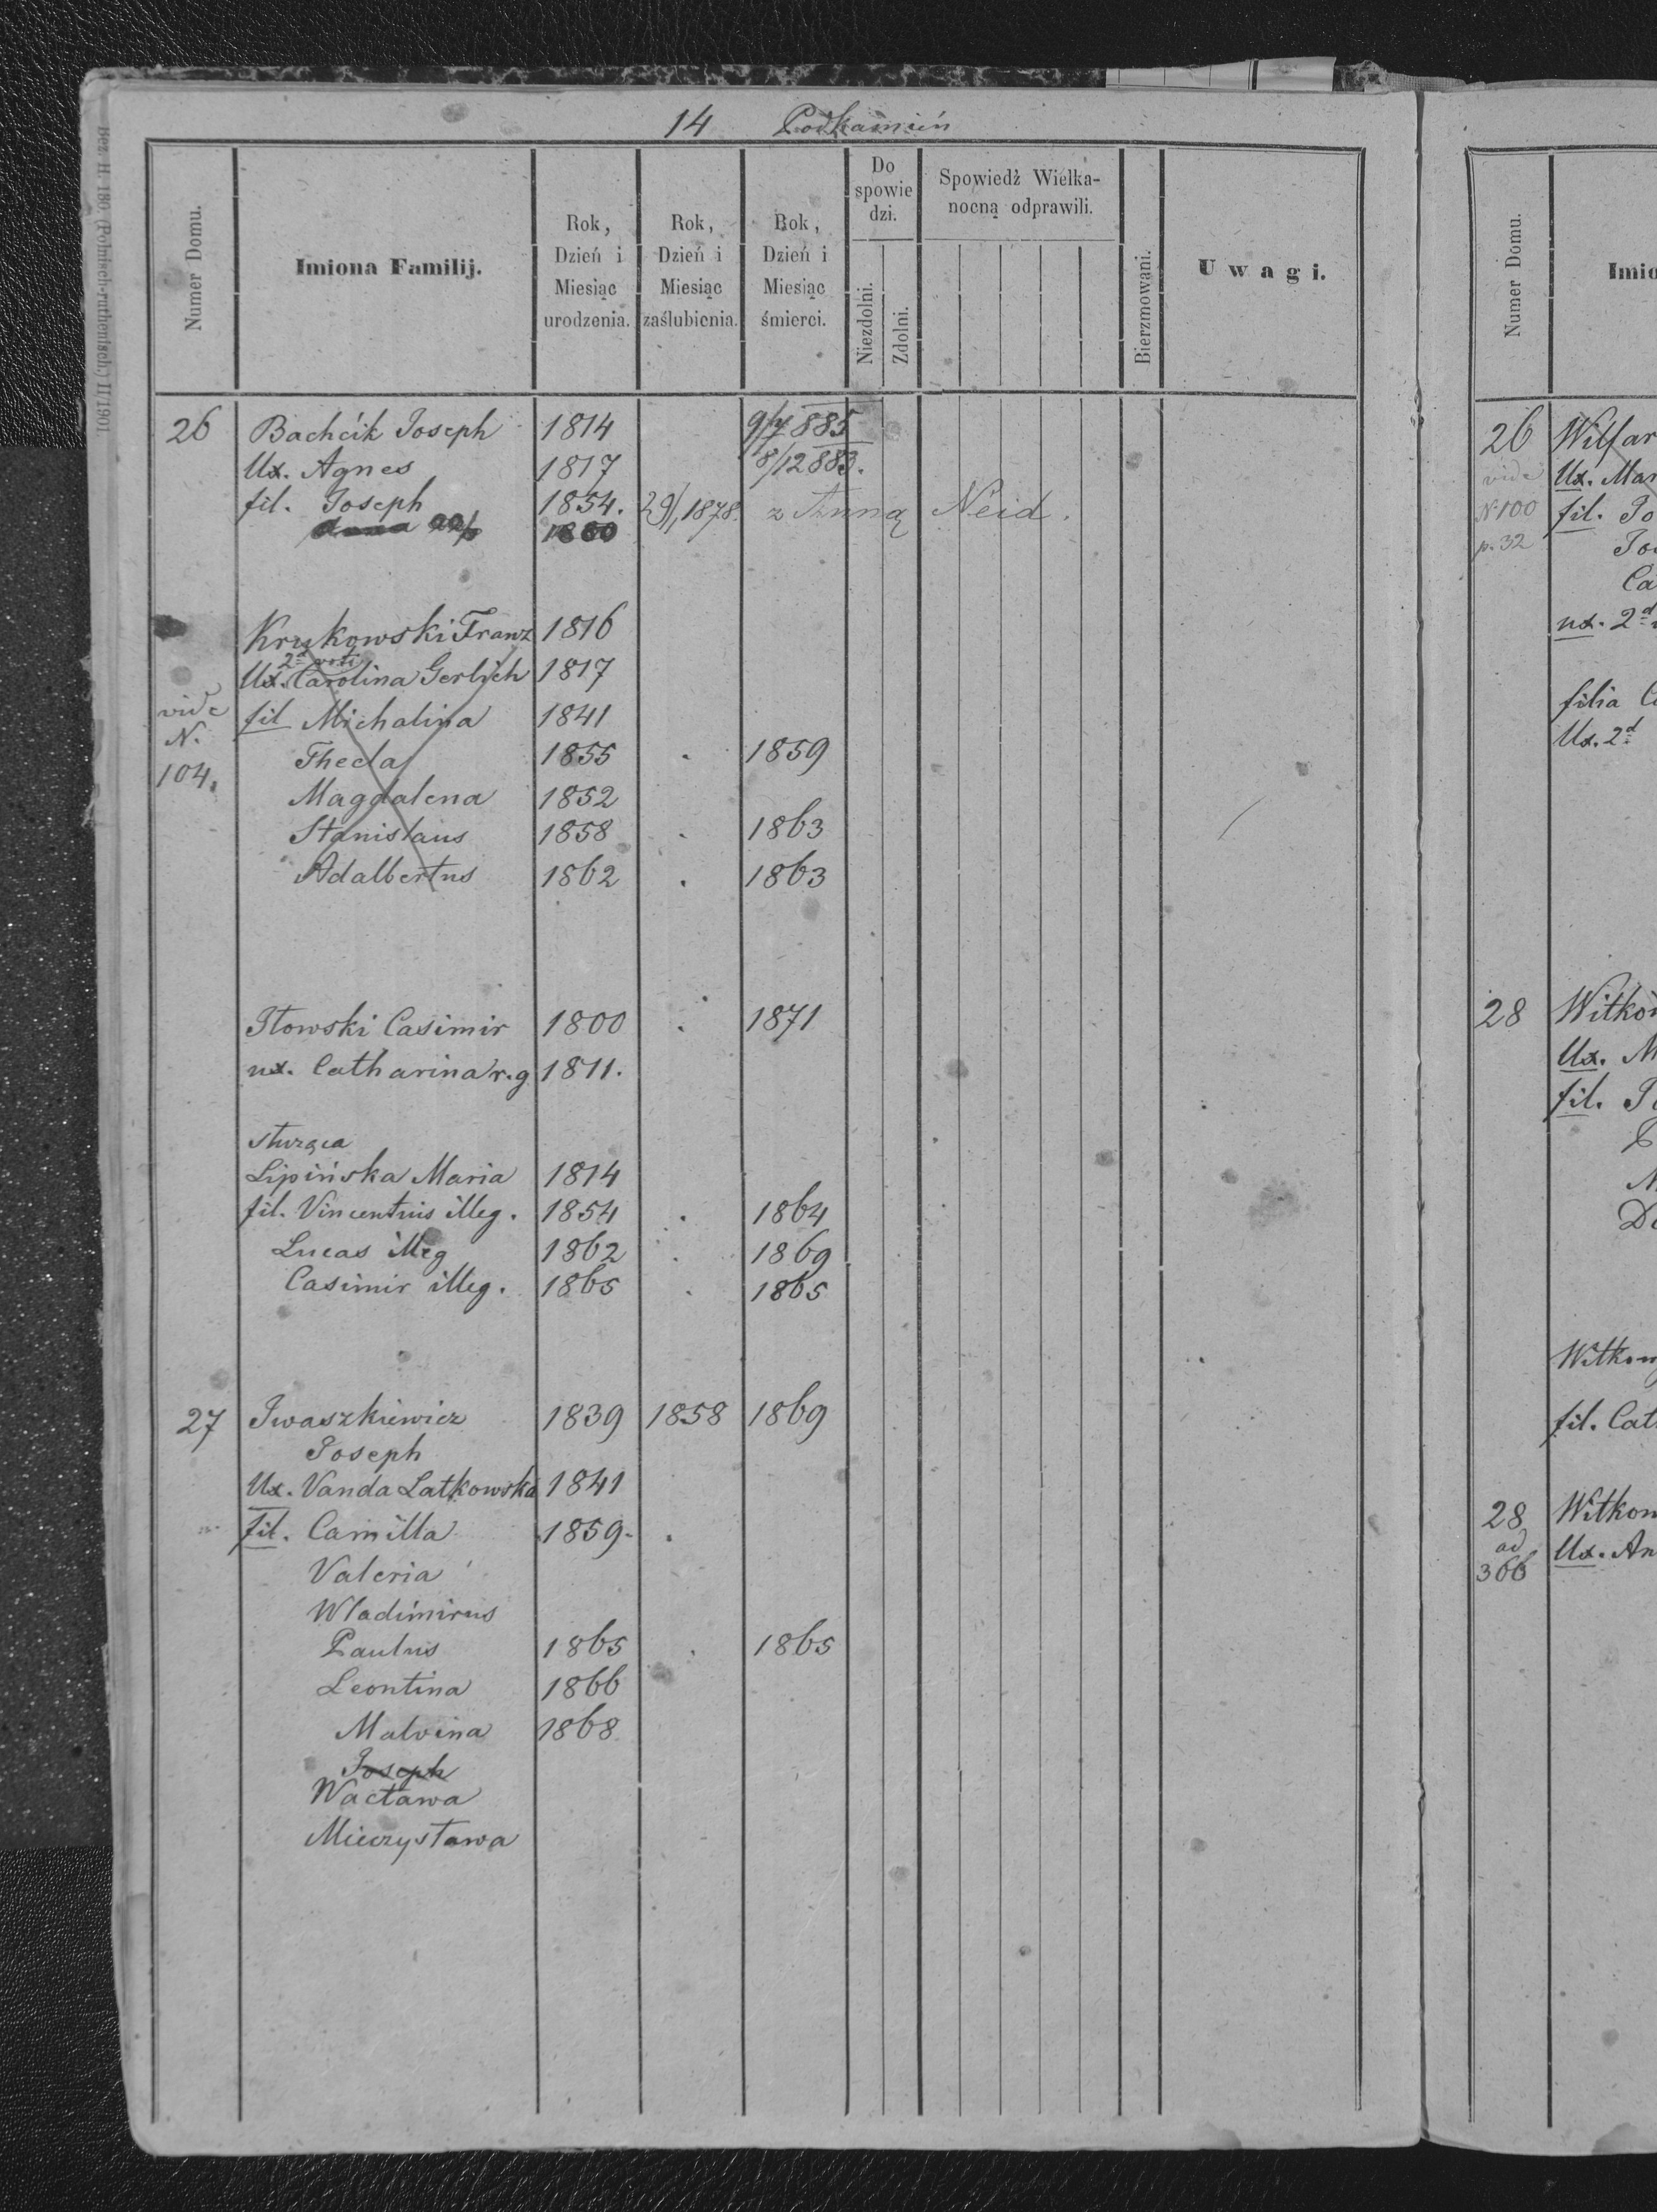 14 Podkamień
Bez. H. 180. (Polnisch-ruthenisch.) II/1901
Numer Domu.
Imiona Familij.
Rok, Dzień i Miesiąc urodzenia.
Rok, Dzień i Miesiąc zaślubienia.
Rok, Dzień i Miesiąc śmierci.
Do spowiedzi.
Niezdolni.
Zdolni.
Spowiedź Wielkanocną odprawili.
Bierzmowani.
Uwagi.
26 Bachcik Joseph 1814 9/7 885
Ux. Agnes 1817 8/12 883.
fil. Joseph 1854. 29/1 1878. z Anną Neid.
1860
Krykowski Franz 1816
2d voti
Ux. Carolina Gerlich 1817
vide N. 104.
fil Michalina 1841
Thecla 1855 . 1859
Magdalena 1852
Stanislaus 1858 . 1863
Adalbertus 1862 . 1863
Iłowski Casimir 1800 . 1871
ux. Catharina r.g 1811.
służąca
Lipińska Maria 1814
fil. Vincentius illeg. 1854 . 1864
Lucas illeg 1862 . 1869
Casimir illeg. 1865 . 1865
27 Iwaszkiewicz 1839 1858 1869
Joseph
Ux. Vanda Latkowska 1841
fil. Camilla 1859 .
Valeria
Wladimirus
Paulus 1865 . 1865
Leontina 1866
Malvina 1868
Joseph
Wacława
Mieczysława
Numer Domu.
Imio
26 Wilfar
vide Ux. Mar
N 100 fil. Jo
p. 32
Ca
ux. 2d
filia C
Ux. 2d
28 Witkow
Ux. M
fil. J
Witkow
fil. Cat
28 Witkow
ad Ux. An
366